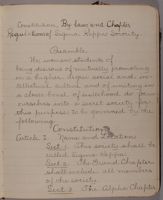 Constitution, By laws and Chapter
Requirements of Sigma Kappa Sorority.
Preamble.
We women students of
being desirous of mutually promoting
on a higher degree social and in-
tellectual culture and of uniting in
a closer bond of sisterhood do form
ourselves into a secret society for
this purpose; to be governed by the
following
Constitution
Article I. Name and Location
Sect. 1. This society shall be
called Sigma Kappa.
Sect. 2. The Grand Chapter
shall include all members
of the society.
Sect. 3. The Alpha Chapter